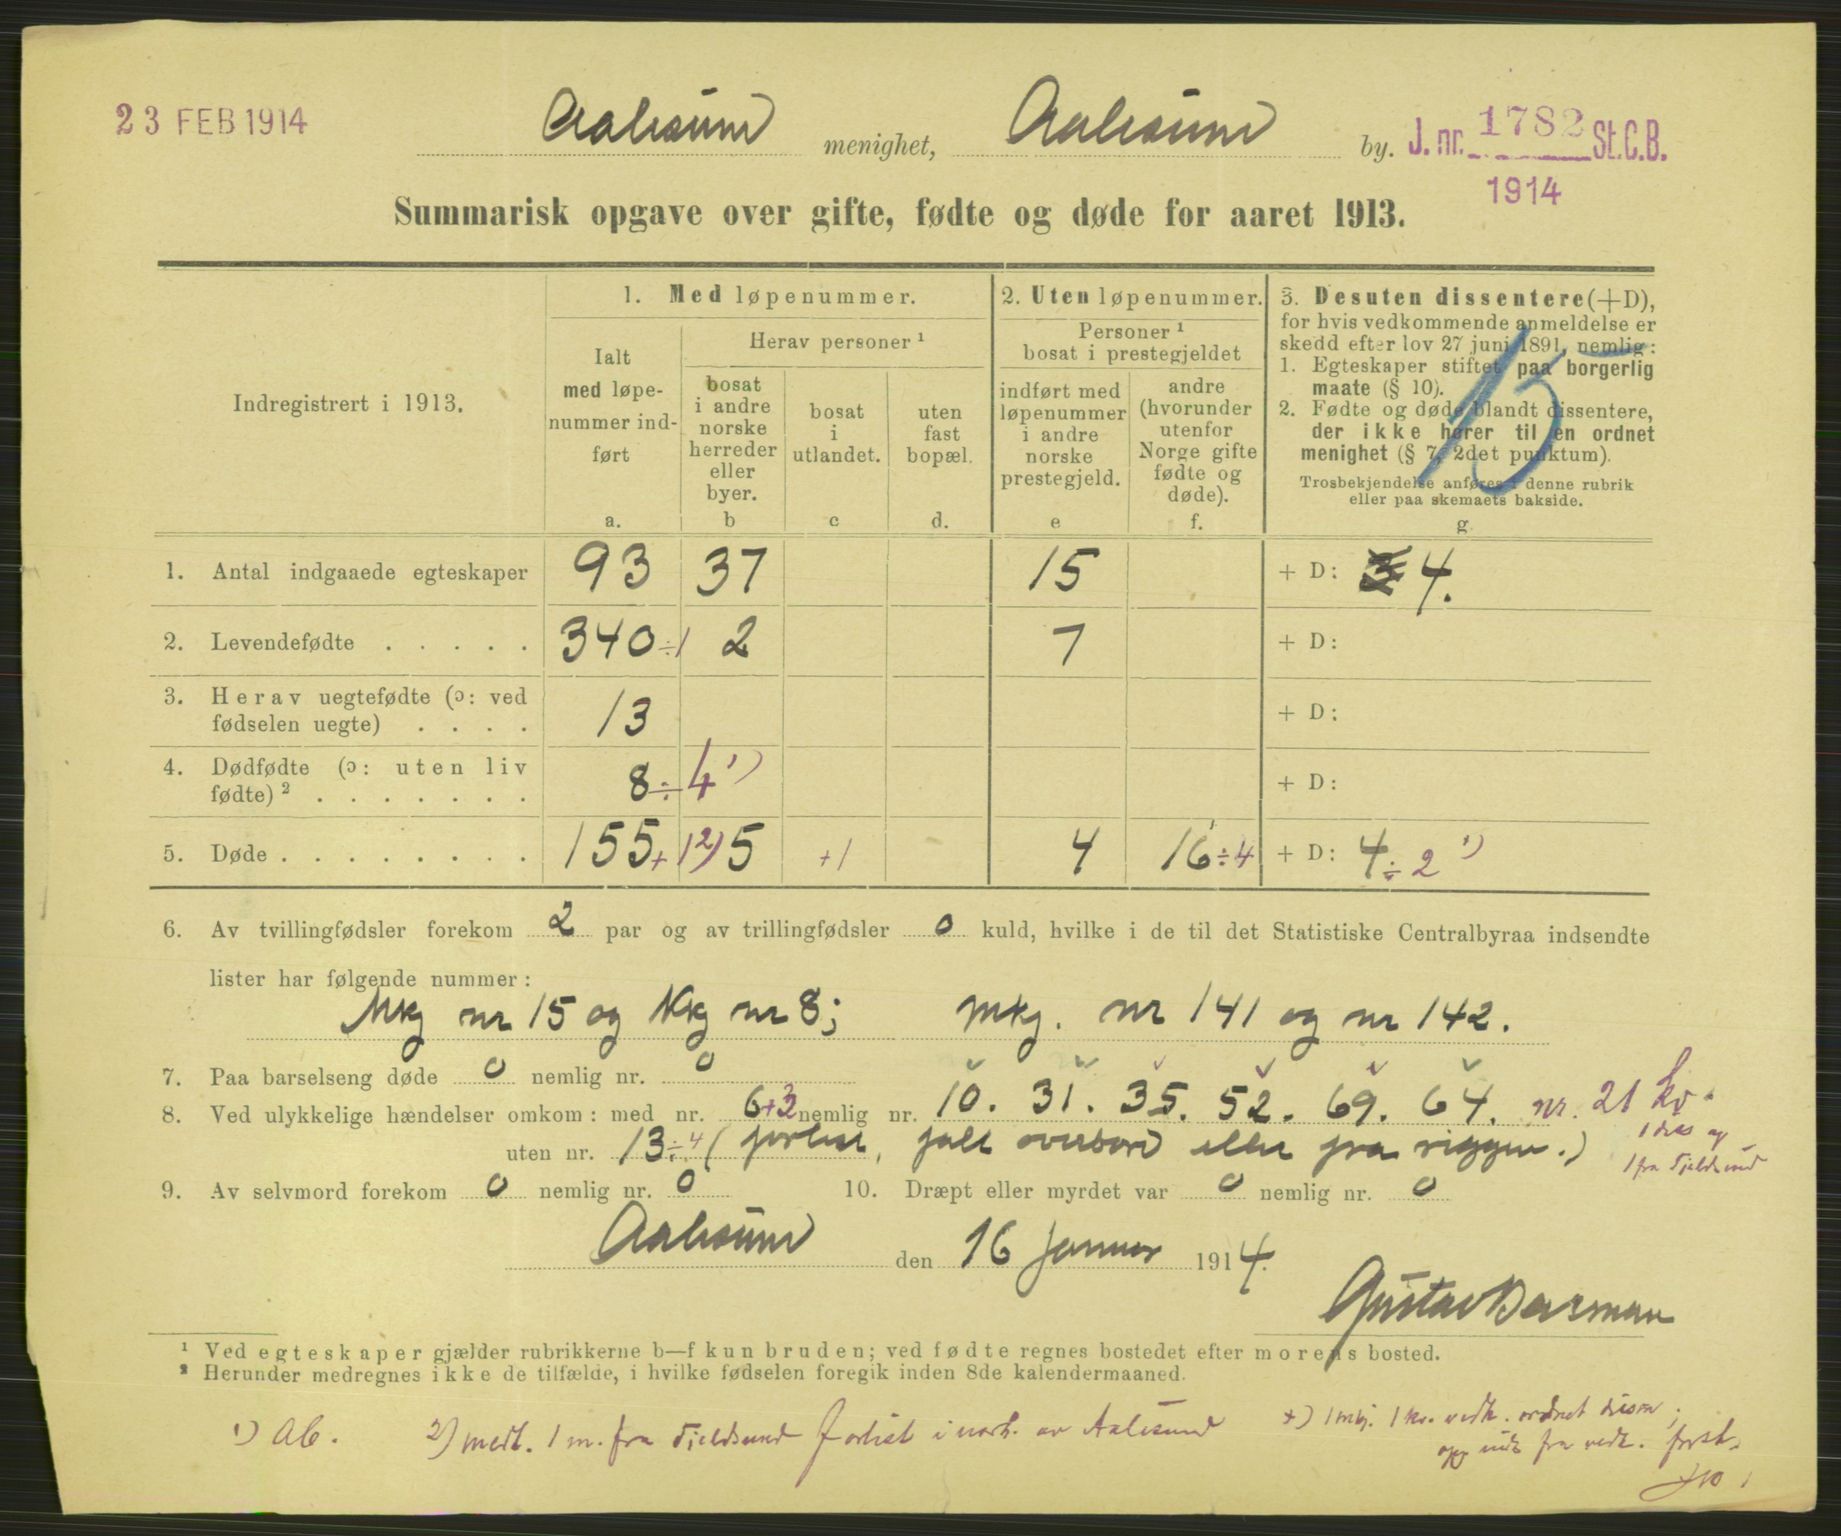 23 FEB 1914
Aalesund menighet, Aalesund by. J. nr. 1782 St.C.B.
1914
Summarisk opgave over gifte, fødte og døde for aaret 1913.
Indregistrert i 1913.
1. Med løpenummer.
Ialt
med løpe-
nummer ind-
ført
a.
Herav personer ¹
bosat
i andre
norske
herreder
eller
byer.
b
bosat
i
utlandet.
c
uten
fast
bopæl.
d.
2. Uten løpenummer.
Personer ¹
bosat i prestegjeldet
indført med
løpenummer
i andre
norske
prestegjeld.
e
andre
(hvorunder
utenfor
Norge gifte
fødte og
døde).
f.
3. Desuten dissentere (+D),
for hvis vedkommende anmeldelse er
skedd efter lov 27 juni 1891, nemlig:
1. Egteskaper stiftet paa borgerlig
maate (§ 10).
2. Fødte og døde blandt dissentere,
der ikke hører til en ordnet
menighet (§ 7, 2det punktum).
Trosbekjendelse anføres i denne rubrik
eller paa skemaets bakside.
g
15
1. Antal indgaaede egteskaper 93 37 15 + D: 3 4.
2. Levendefødte . . . . . 340 ÷1 2 7 + D:
3. Herav uegtefødte (ɔ: ved
fødselen uegte) . . . . 13 + D:
4. Dødfødte (ɔ: uten liv
fødte) ² . . . . . . . 8 ÷ 4 ¹) + D:
5. Døde . . . . . . . . 155 + 1 ²) 5 +1 4 16 ÷4 + D: 4 ÷ 2 ¹)
6. Av tvillingfødsler forekom 2 par og av trillingfødsler 0 kuld, hvilke i de til det Statistiske Centralbyraa indsendte
lister har følgende nummer:
Mkg nr 15 og Kkg nr 8; Mkg. nr 141 og nr 142.
7. Paa barselseng døde 0 nemlig nr. 0
8. Ved ulykkelige hændelser omkom: med nr. 6+3 nemlig nr. 10. 31. 35. 52. 69. 64. nr. 21 kv.
uten nr. 13 ÷4 (forlist, falt overbord eller fra riggen.)
1 fra Fjeldsund
9. Av selvmord forekom 0 nemlig nr. 0 10. Dræpt eller myrdet var 0 nemlig nr. 0
Aalesund den 16 januar 1914.
Gustav
¹ Ved egteskaper gjælder rubrikkerne b—f kun bruden; ved fødte regnes bostedet efter morens bosted.
² Herunder medregnes ikke de tilfælde, i hvilke fødselen foregik inden 8de kalendermaaned.
¹) Ab. ²) medt. 1 m. fra Fjeldsund forlist i nærh. av Aalesund
+) 1 mkj. 1 kv. vedk. ordnet dissm;